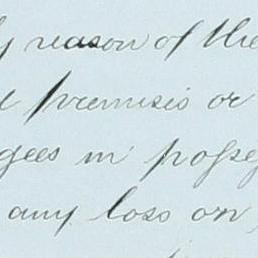 y reason of the
premises or
gees in posse
any loss on